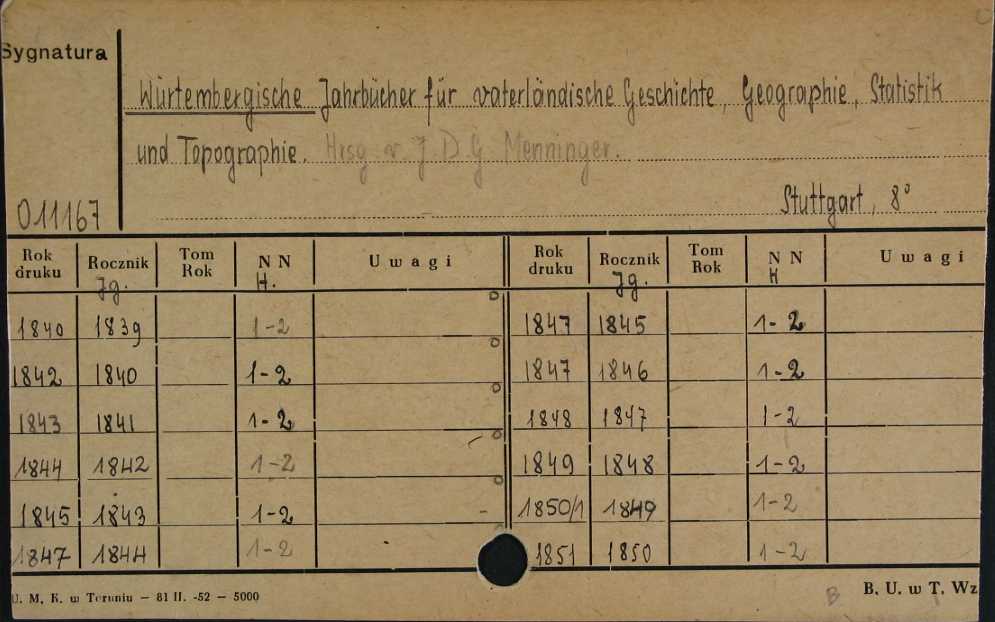 Sygnatura
Würtembergische Jahrbücher für vaterländische Geschichte, Geographie, Statistik
und Topographie. Hrsg. v. J. D. G. Menninger.
011167 Stuttgart, 8°
Rok druku Rocznik Tom Rok NN Uwagi Rok druku Rocznik Tom Rok NN Uwagi
Jg. H. Jg. H
1840 1839 1-2 1847 1845 1-2
1842 1840 1-2 1847 1846 1-2
1843 1841 1-2 1848 1847 1-2
1844 1842 1-2 1849 1848 1-2
1845 1843 1-2 1850/1 1849 1-2
1847 1844 1-2 1851 1850 1-2
U. M. K. w Toruniu — 81 II. -52 — 5000 B B. U. w T. Wz